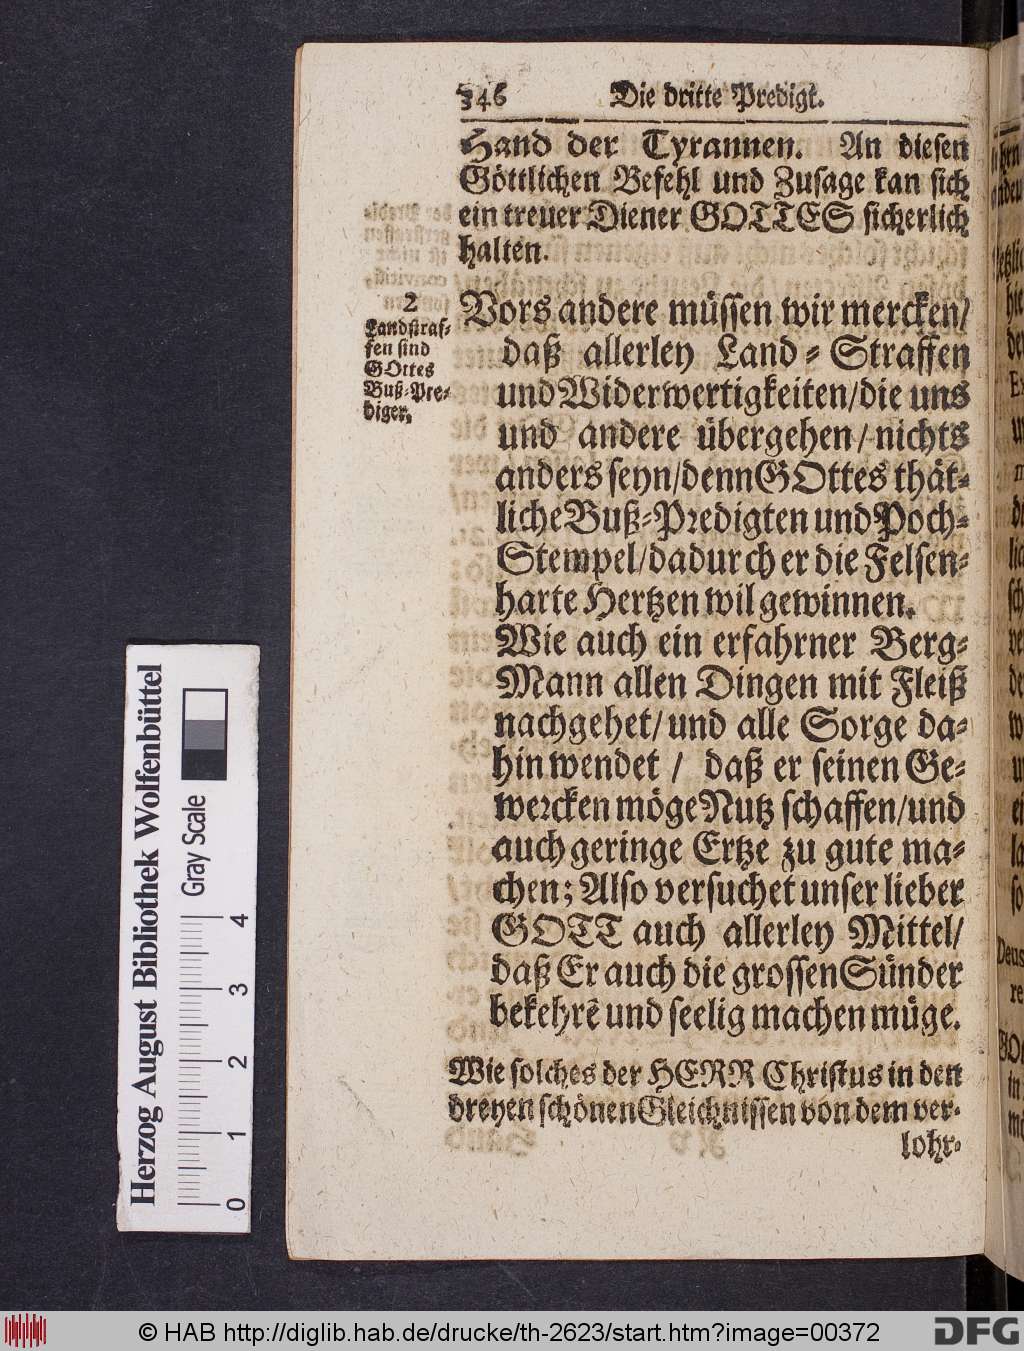 346 Die dritte Predigt.
Hand der Tyrannen. An diesen
Göttlichen Befehl und Zusage kan sich
ein treuer Diener GOTTES sicherlich
halten.
2
Landstraf-
fen sind
GOttes
Buß-Pre-
diger.
Vors andere müssen wir mercken/
daß allerley Land-Straffen
und Widerwertigkeiten/die uns
und andere übergehen/nichts
anders seyn/denn GOttes thät-
liche Buß-Predigten und Poch-
Stempel/dadurch er die Felsen-
harte Hertzen wil gewinnen.
Wie auch ein erfahrner Berg-
Mann allen Dingen mit Fleiß
nachgehet/und alle Sorge da-
hin wendet / daß er seinen Ge-
wercken möge Nutz schaffen/und
auch geringe Ertze zu gute ma-
chen; Also versuchet unser lieber
GOTT auch allerley Mittel/
daß Er auch die grossen Sünder
bekehrẽ und seelig machen müge.
Wie solches der HERR Christus in den
dreyen schönen Gleichnissen von dem ver-
lohr-
Herzog August Bibliothek Wolfenbüttel
Gray Scale
0 1 2 3 4
© HAB http://diglib.hab.de/drucke/th-2623/start.htm?image=00372
DFG